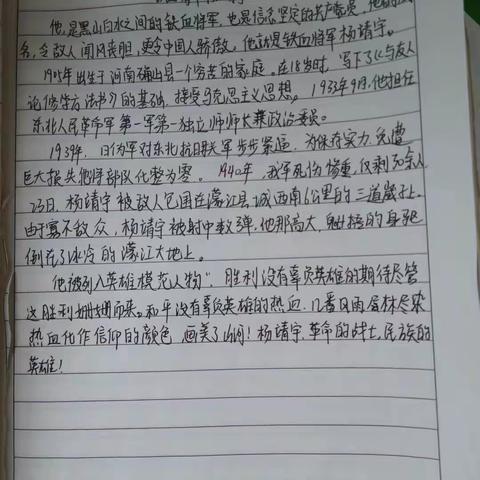 他是黑山白水之间的铁血将军,也是信念坚定的共产党员,他的
名,令敌人闻风丧胆,更令中国人骄傲,他就是铁血将军杨靖宇。
1905年出生于河南确山县一个穷苦的家庭。在18岁时,写下了《与友人
论修学方法书》的基础,接受马克思主义思想。1933年9月,他担任
东北人民革命军第一军第一独立师师长兼政治委员。
1939年,日伪军对东北抗日联军步步紧逼,为保存实力,免遭
巨大损失他将部队化整为零。1940年,我军死伤惨重,仅剩30余人
23日,杨靖宇被敌人包围在濛江县城西南6公里的三道崴子上。
由于寡不敌众,杨靖宇被射中数弹,他那高大,魁梧的身躯
倒在了冰冷的濛江大地上。
他被列入英雄模范人物",胜利没有辜负英雄的期待尽管
这胜利姗姗而来。和平没有辜负英雄的热血,几番风雨层林尽染
热血化作信仰的颜色,画美了山河!杨靖宇,革命的战士,民族的
英雄!